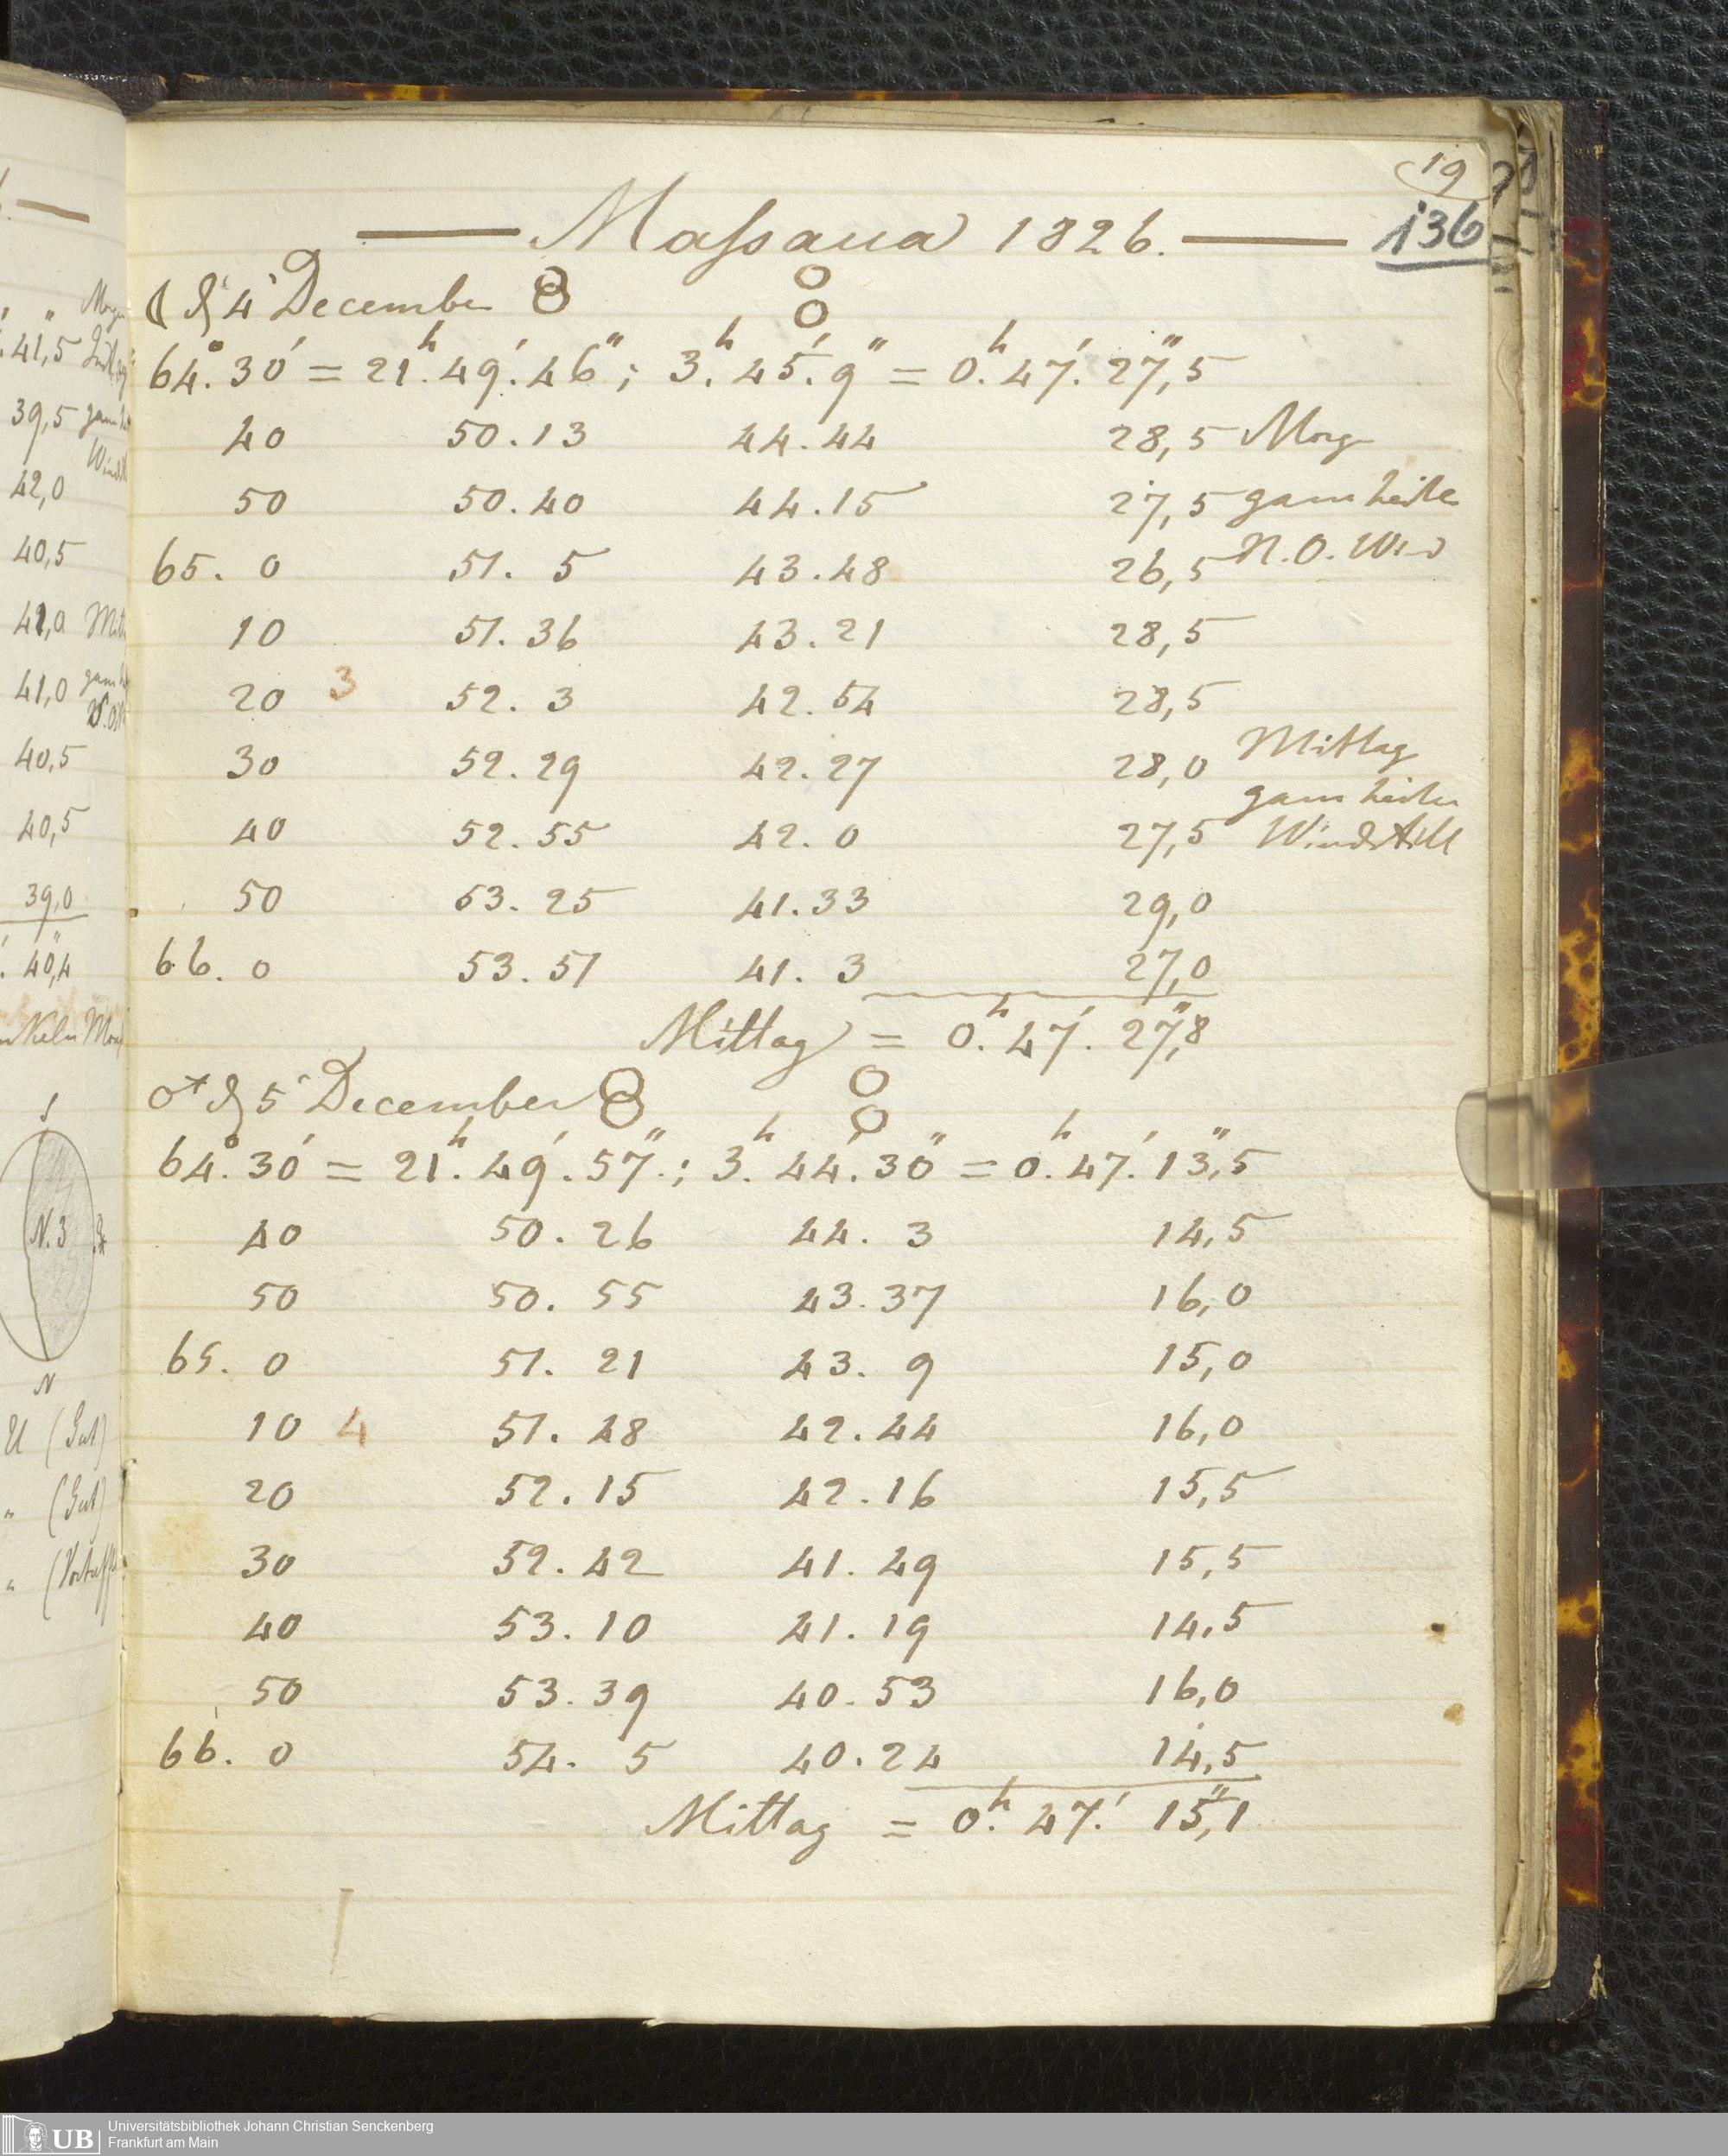 19
136
Maſsaua 1826.
☾ d 4' December
64°. 30' = 21h. 49'. 46"; 3h. 45'. 9" = 0h. 47'. 27",5
40 50. 13 44. 44 28,5 Morg
50 50. 40 44. 15 27,5 ganz heiter
65. 0 51. 5 43. 48 26,5 N. O. Wind
10 51. 36 43. 21 28,5
20 3 52. 3 42. 54 28,5
30 52. 29 42. 27 28,0 Mittag
ganz heiter
40 52. 55 42. 0 27,5 Windstill
50 53. 25 41. 33 29,0
66. 0 53. 51 41. 3 27,0
Mittag = 0h. 47'. 27",8
♂ d 5' December
64°. 30' = 21h. 49'. 57".; 3h. 44'. 30" = 0h. 47'. 13",5
40 50. 26 44. 3 14,5
50 50. 55 43. 37 16,0
65. 0 51. 21 43. 9 15,0
10 4 51. 48 42. 44 16,0
20 52. 15 42. 16 15,5
30 52. 42 41. 49 15,5
40 53. 10 41. 19 14,5
50 53. 39 40. 53 16,0
66. 0 54. 5 40. 24 14,5
Mittag = 0h. 47'. 15",1
41,5
39,5
42,0
40,5
41,0
40,5
40,5
39,0
40,4
S
N. 3
N
(Gut)
" (Gut)
UB Universitätsbibliothek Johann Christian Senckenberg
Frankfurt am Main